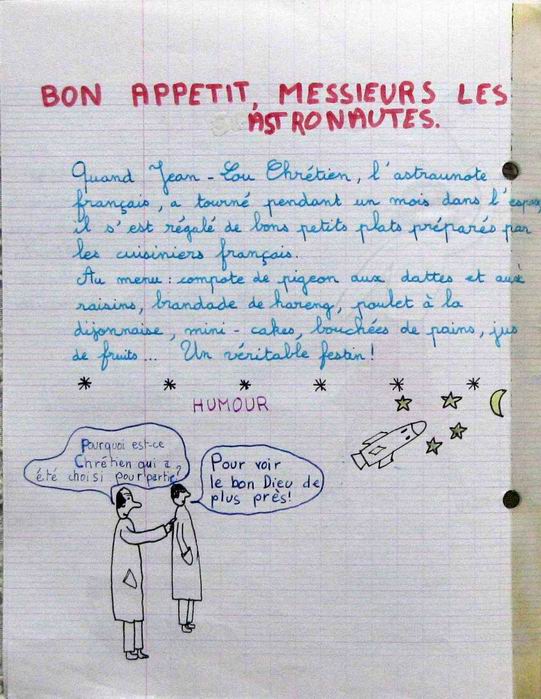 BON APPETIT, MESSIEURS LES
ASTRONAUTES.
Quand Jean-Lou Chrétien, l'astraunote
français, a tourné pendant un mois dans l'espace
il s'est régalé de bons petits plats préparés par
les cuisiniers français.
Au menu : compote de pigeon aux dattes et aux
raisins, brandade de hareng, poulet à la
dijonnaise, mini-cakes, bouchées de pains, jus
de fruits... Un véritable festin !
HUMOUR
Pourquoi est-ce
Chrétien qui a
été choisi pour partir ?
Pour voir
le bon Dieu de
plus près!